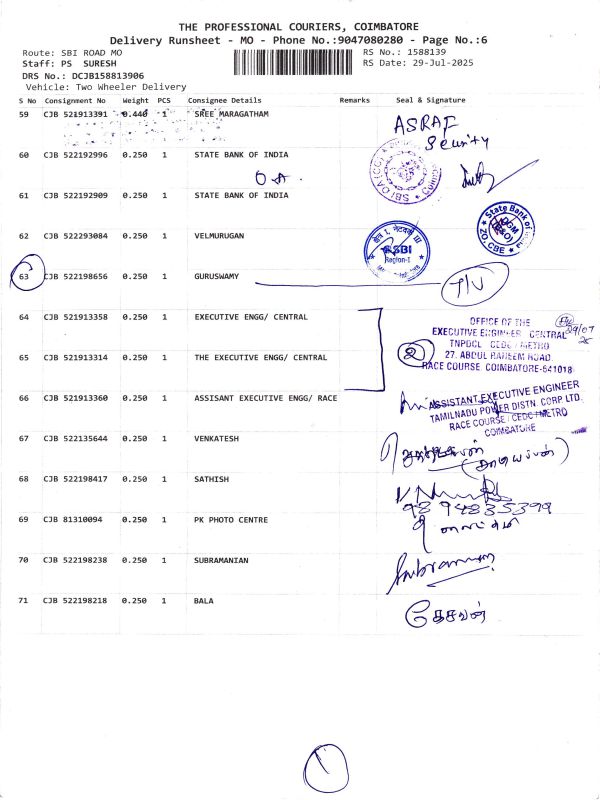 THE PROFESSIONAL COURIERS, COIMBATORE
Delivery Runsheet - MO - Phone No.:9047080280 - Page No.:6
Route: SBI ROAD MO
RS No.: 1588139
Staff: PS SURESH
RS Date: 29-Jul-2025
DRS No.: DCJB158813906
Vehicle: Two Wheeler Delivery
S No Consignment No Weight PCS Consignee Details Remarks Seal & Signature
59 CJB 521913391 0.440 1 SREE MARAGATHAM
ASRAF
60 CJB 522192996 0.250 1 STATE BANK OF INDIA
61 CJB 522192909 0.250 1 STATE BANK OF INDIA
State Bank of
ZO, CBE
62 CJB 522293084 0.250 1 VELMURUGAN
SBI
Region-I
63 CJB 522198656 0.250 1 GURUSWAMY
64 CJB 521913358 0.250 1 EXECUTIVE ENGG/ CENTRAL
OFFICE OF THE
EXECUTIVE ENGINEER CENTRAL
TNPDCL CEDC / METRO
65 CJB 521913314 0.250 1 THE EXECUTIVE ENGG/ CENTRAL
2
27. ABDUL RAHEEM ROAD.
RACE COURSE COIMBATORE-641018
66 CJB 521913360 0.250 1 ASSISANT EXECUTIVE ENGG/ RACE
ASSISTANT EXECUTIVE ENGINEER
TAMILNADU POWER DISTN. CORP LTD.
RACE COURSE / CEDC / METRO
COIMBATORE
67 CJB 522135644 0.250 1 VENKATESH
68 CJB 522198417 0.250 1 SATHISH
9894835399
69 CJB 81310094 0.250 1 PK PHOTO CENTRE
70 CJB 522198238 0.250 1 SUBRAMANIAN
Subramani
71 CJB 522198218 0.250 1 BALA
கேசவன்
1